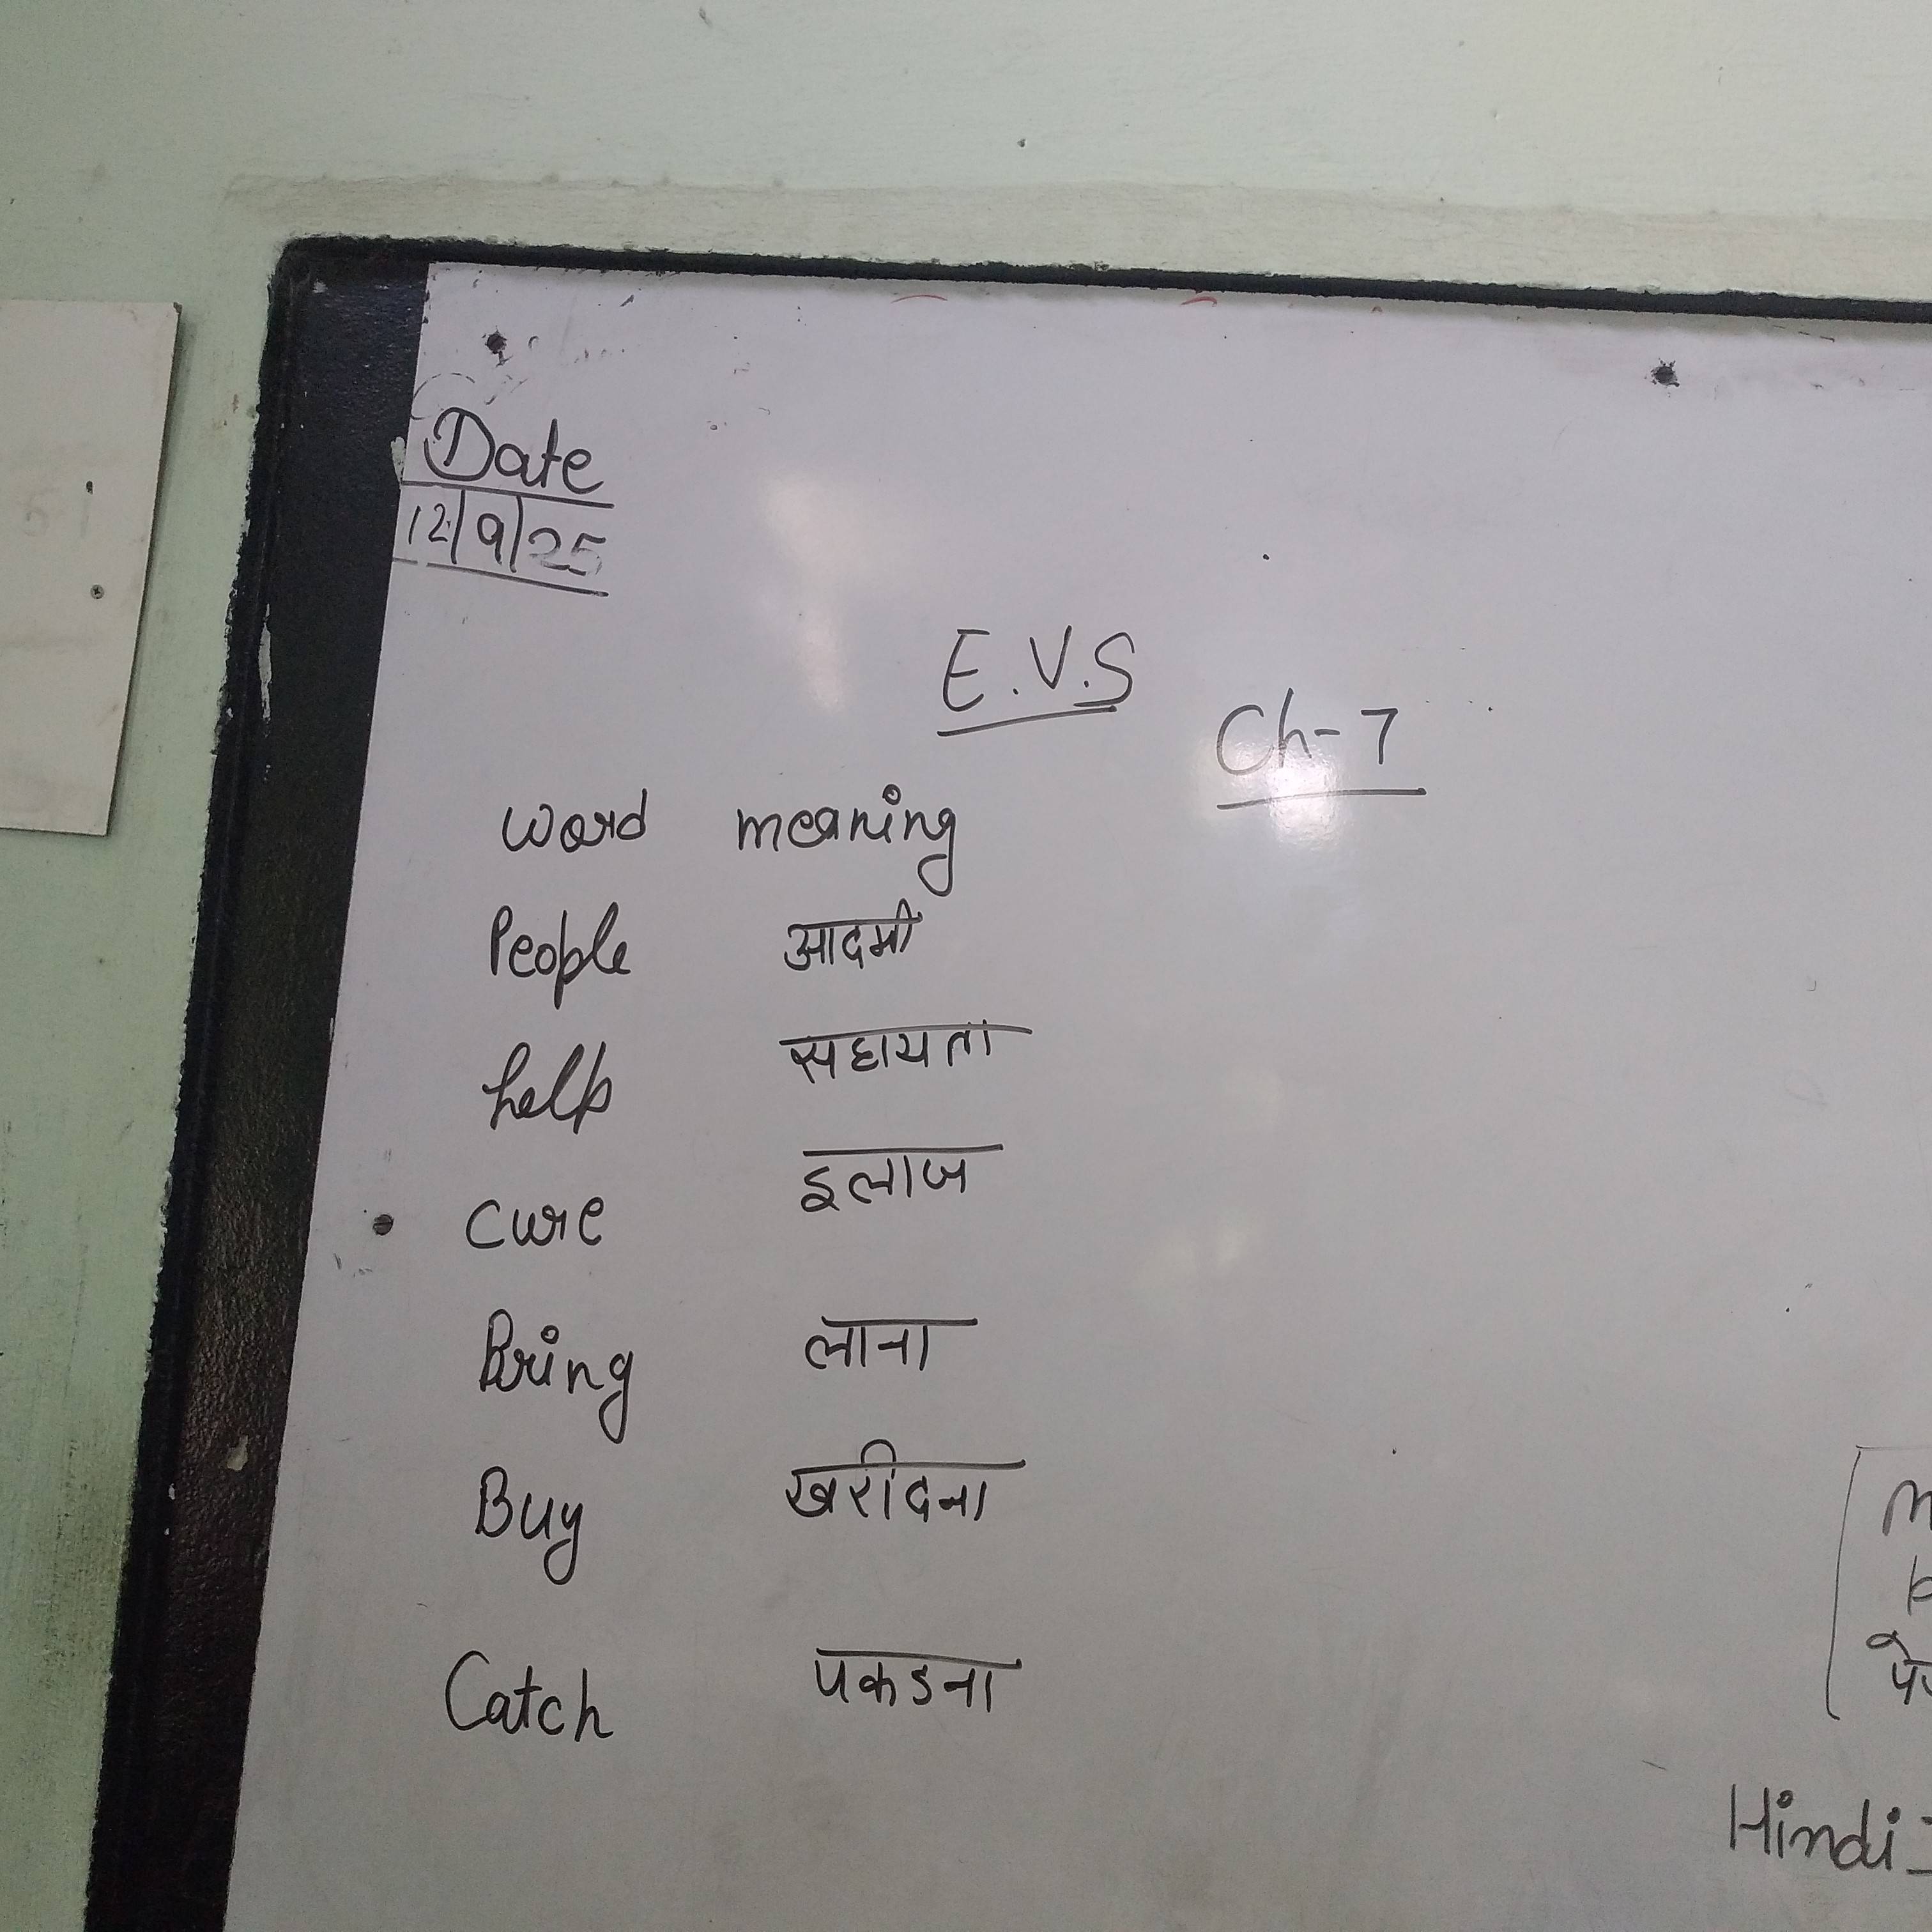 Date
12/9/25
E.V.S
Ch-7
word meaning
People आदमी
help सहायता
cure इलाज
Bring लाना
Buy खरीदना
Catch पकडना
Hindi